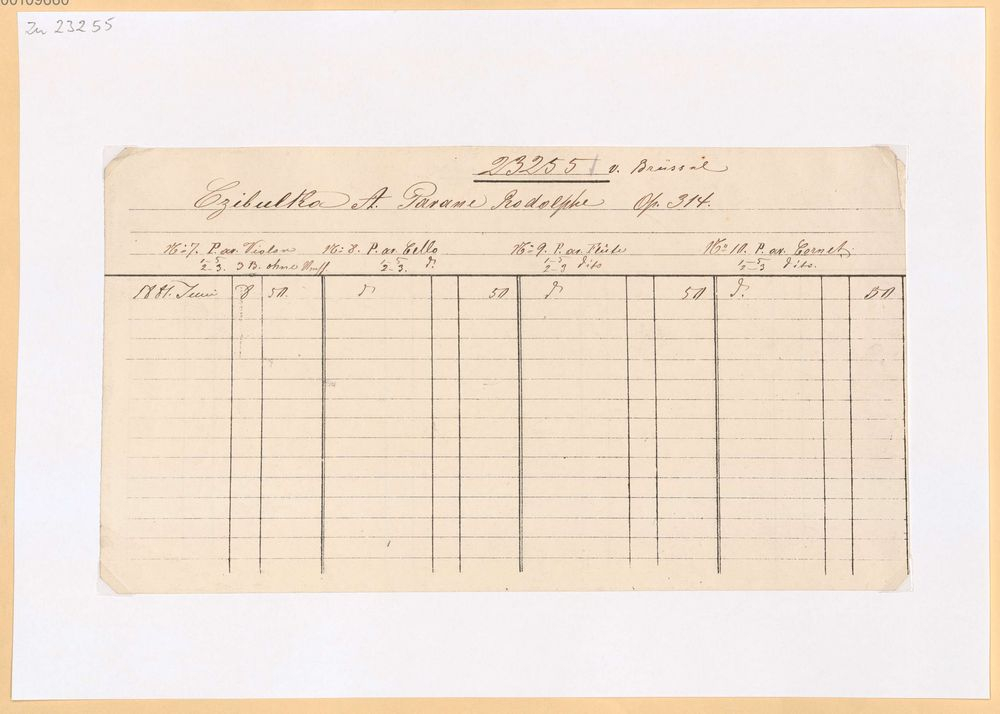 00109660
Zu 23255
23255 v. Brüssel
Czibulka A. Pavane Rodolphe Op. 314.
No 7. P. av. Violon No 8. P. av. Cello No 9. P. av. Flûte No 10. P. av. Cornet
1/2 5/3. 3 B. ohne 1/2 5/3. do 1/2 5/3 dito 1/2 5/3 dito.
1881. Juni 8 50. do 50 do 50 do. 50